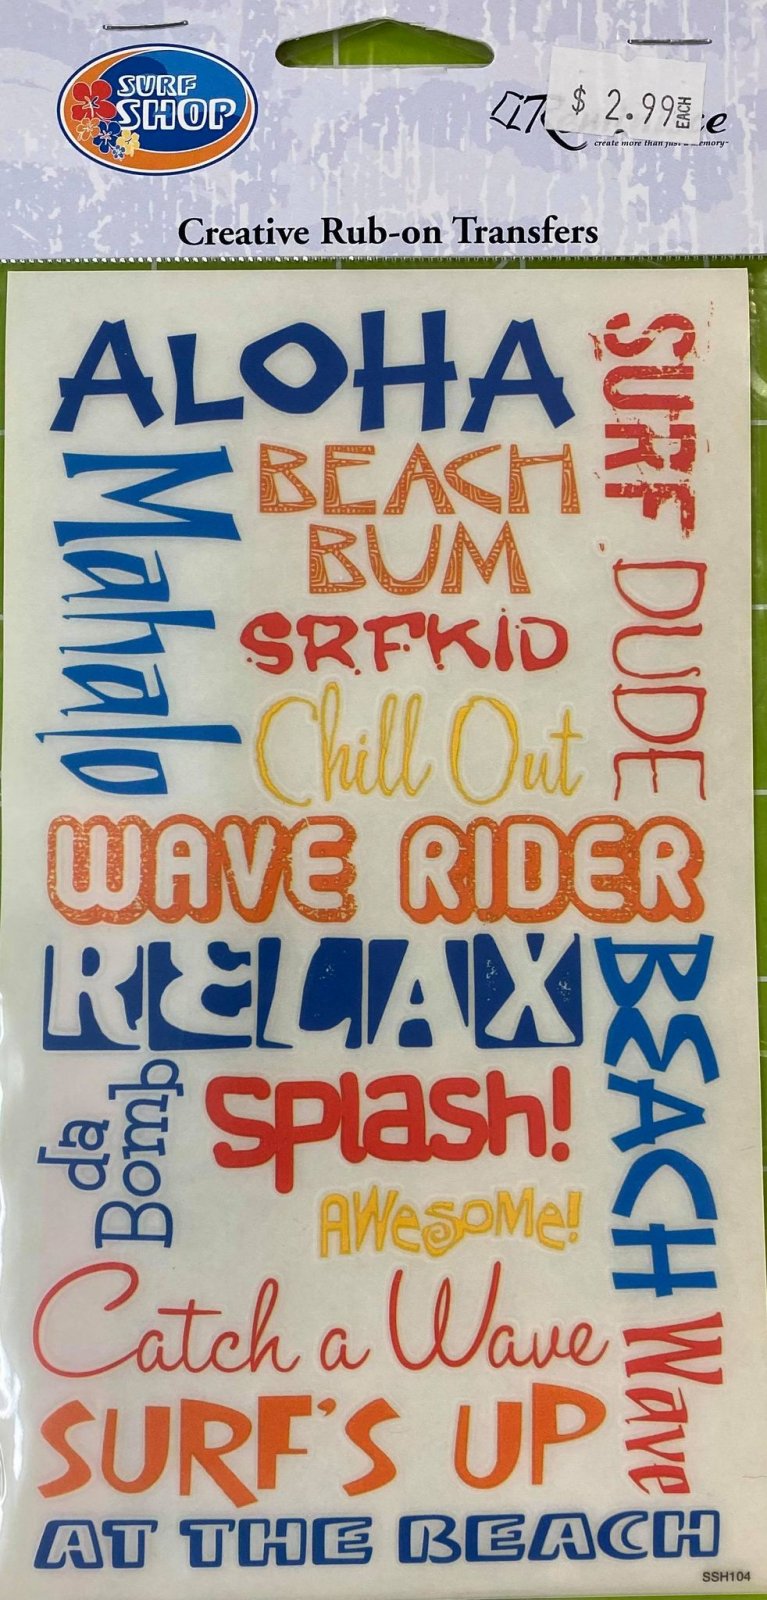 SURF
SHOP
$ 2.99 EACH
create more than just a memory~
Creative Rub-on Transfers
ALOHA
SURF DUDE
Mahalo
BEACH
BUM
SRFKID
Chill Out
WAVE RIDER
RELAX
BEACH
da
Bomb
Splash!
AWeSoMe!
Catch a Wave
Wave
SURF'S UP
AT THE BEACH
SSH104